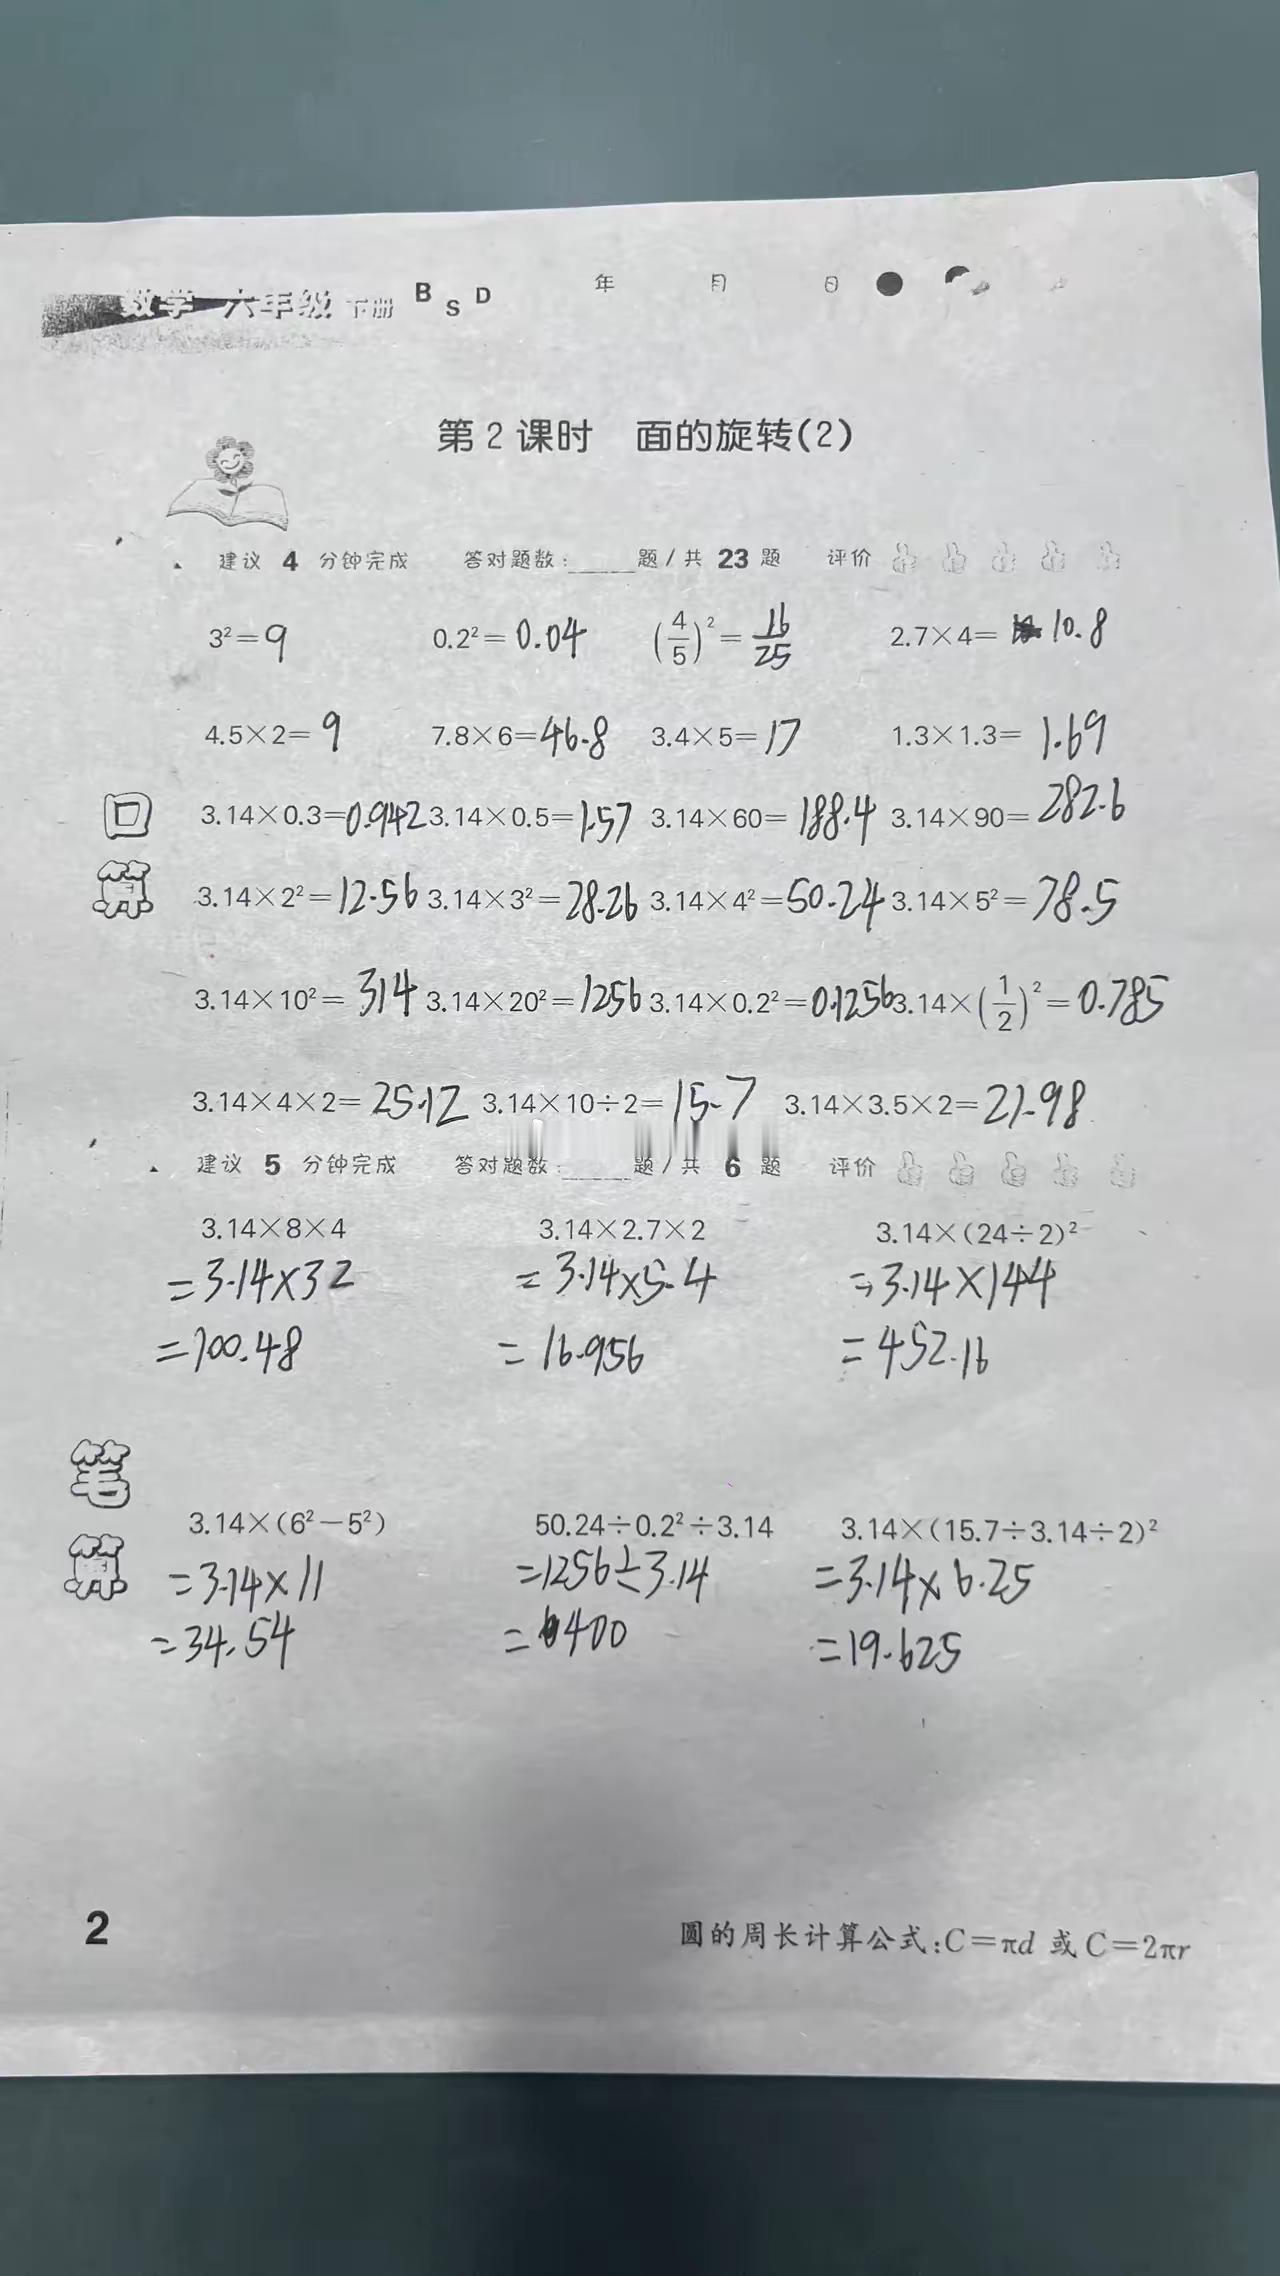 数学 六年级 下册 B S D 年 月 日
第2课时 面的旋转(2)
建议 4 分钟完成 答对题数:____题/共 23 题 评价
3²=9 0.2²=0.04 (4/5)²=16/25 2.7×4=10.8
4.5×2=9 7.8×6=46.8 3.4×5=17 1.3×1.3=1.69
口算
3.14×0.3=0.942 3.14×0.5=1.57 3.14×60=188.4 3.14×90=282.6
3.14×2²=12.56 3.14×3²=28.26 3.14×4²=50.24 3.14×5²=78.5
3.14×10²=314 3.14×20²=1256 3.14×0.2²=0.1256 3.14×(1/2)²=0.785
3.14×4×2=25.12 3.14×10÷2=15.7 3.14×3.5×2=21.98
建议 5 分钟完成 答对题数:____题/共 6 题 评价
3.14×8×4 3.14×2.7×2 3.14×(24÷2)²
=3.14×32 =3.14×5.4 =3.14×144
=100.48 =16.956 =452.16
笔算
3.14×(6²-5²) 50.24÷0.2²÷3.14 3.14×(15.7÷3.14÷2)²
=3.14×11 =1256÷3.14 =3.14×6.25
=34.54 =400 =19.625
2
圆的周长计算公式:C=πd 或 C=2πr